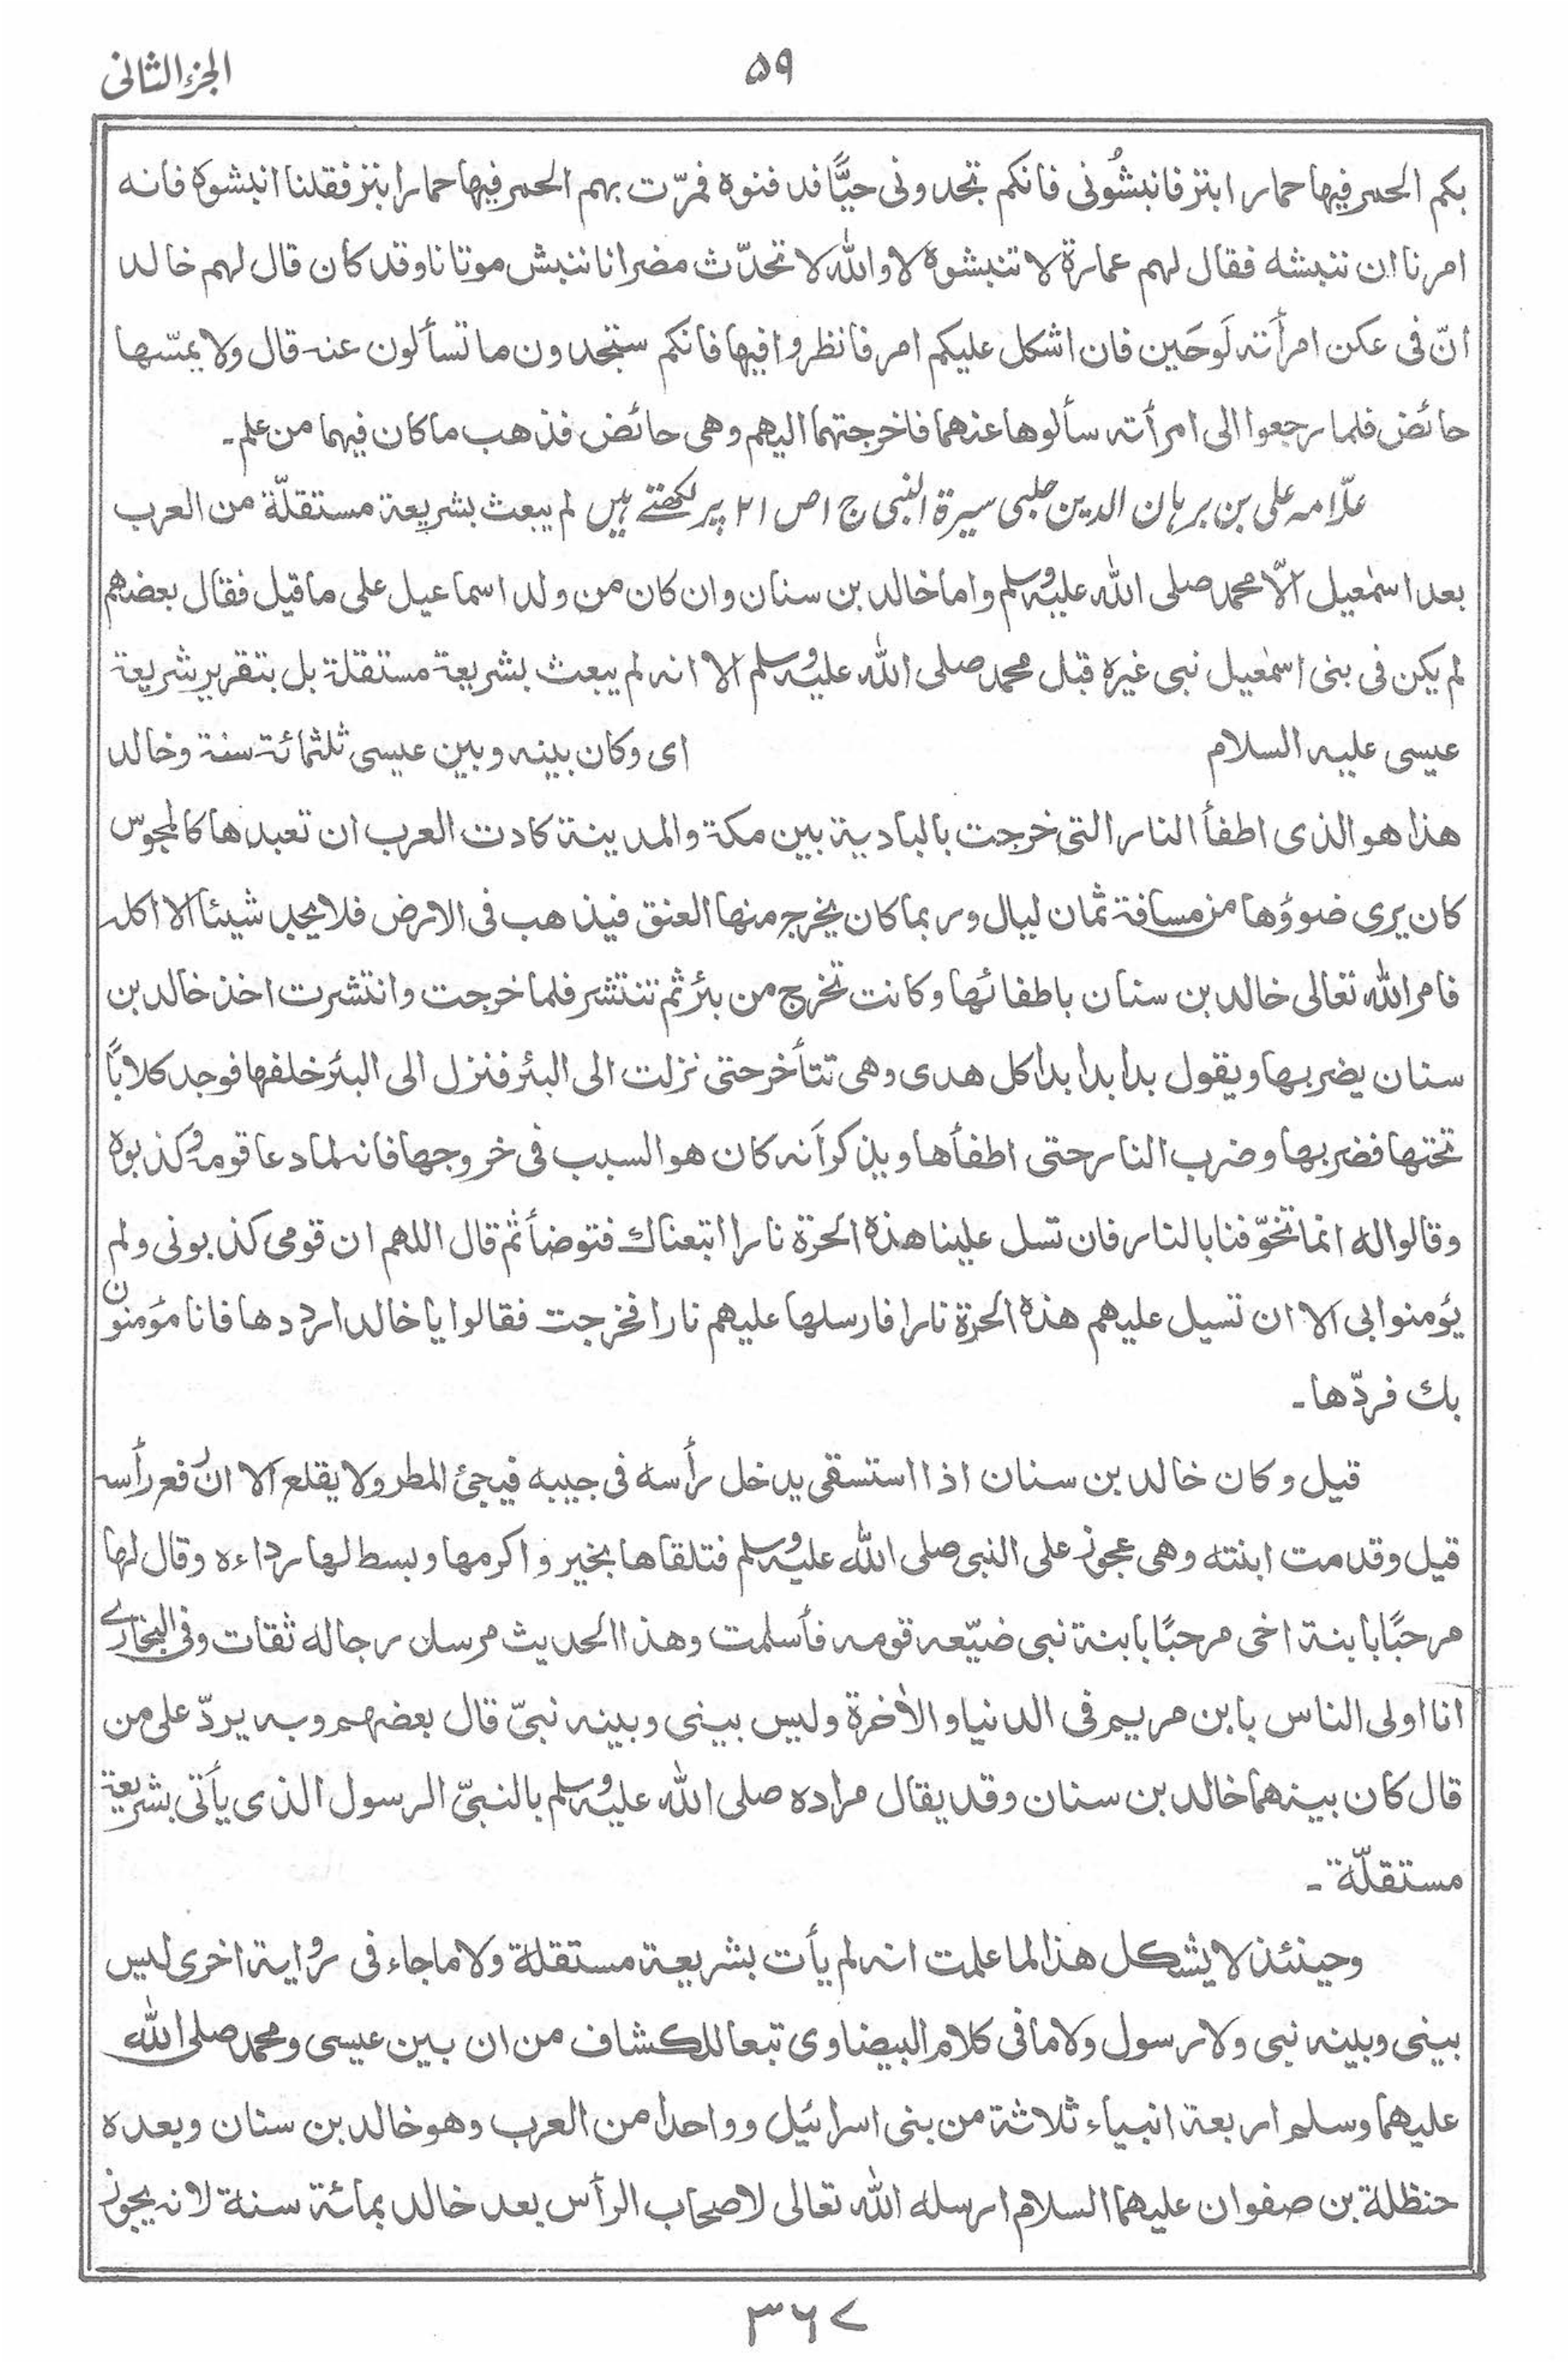 الجزء الثانی
۵۹
بكم الحمر فيها حمار ابتر فانبشُونى فانكم تجدونى حيًّا فدفنوه فمرّت بهم الحمر فيها حمار ابتر فقلنا انبشوه فانه
امرنا ان ننبشه فقال لهم عمارة لا تنبشوه لا والله لا تحدّث مضر انا ننبش موتانا وقد كان قال لهم خالد
انّ فى عكن امرأته لَوحَين فان اشكل عليكم امر فانظروا فيها فانكم ستجدون ما تسألون عنه قال ولا يمسّها
حائض فلما رجعوا الى امرأته سألوها عنهما فاخرجتهما اليهم وهى حائض فذهب ما كان فيهما من علم۔
علّامہ علی بن برہان الدین حلبی سیرۃ النبی ج ۱ ص ۲۱ پر لکھتے ہیں لم يبعث بشريعة مستقلّة من العرب
بعد اسمٰعيل الّا محمد صلى الله عليه وسلم واما خالد بن سنان وان كان من ولد اسماعيل على ما قيل فقال بعضهم
لم يكن فى بنى اسمٰعيل نبى غيره قبل محمد صلى الله عليه وسلم الا انه لم يبعث بشريعة مستقلة بل بتقرير شريعة
عيسى عليه السلام اى وكان بينه وبين عيسى ثلثمائة سنة وخالد
هذا هو الذى اطفأ النار التى خرجت بالبادية بين مكة والمدينة كادت العرب ان تعبدها كالمجوس
كان يرى ضوؤها من مسافة ثمان ليال وربما كان يخرج منها العنق فيذهب فى الارض فلا يجد شيئا الا اكله
فامر الله تعالى خالد بن سنان باطفائها وكانت تخرج من بئر ثم تنتشر فلما خرجت وانتشرت اخذ خالد بن
سنان يضربها ويقول بدا بدا بدا كل هدى وهى تتأخر حتى نزلت الى البئر فنزل الى البئر خلفها فوجد كلابًا
تحتها فضربها وضرب النار حتى اطفأها ويذكر أنه كان هو السبب فى خروجها فانه لما دعا قومه وكذبوه
وقالوا له انما تخوّفنا بالنار فان تسل علينا هذه الحرّة نارا اتبعناك فتوضأ ثم قال اللهم ان قومى كذبونى ولم
يؤمنوا بى الا ان تسيل عليهم هذه الحرّة نارا فارسلها عليهم نارا فخرجت فقالوا يا خالد ارددها فانا مؤمنون
بك فردّها۔
قيل وكان خالد بن سنان اذا استسقى يدخل رأسه فى جيبه فيجئ المطر ولا يقلع الا ان رفع رأسه
قيل وقدمت ابنته وهى عجوز على النبى صلى الله عليه وسلم فتلقاها بخير واكرمها وبسط لها رداءه وقال لها
مرحبًا بابنة اخى مرحبًا بابنة نبى ضيّعه قومه فأسلمت وهذا الحديث مرسل رجاله ثقات وفى البخارى
انا اولى الناس بابن مريم فى الدنيا والأخرة وليس بينى وبينه نبىّ قال بعضهم وبه يردّ على من
قال كان بينهما خالد بن سنان وقد يقال مراده صلى الله عليه وسلم بالنبىّ الرسول الذى يأتى بشريعة
مستقلّة۔
وحينئذ لا يشكل هذا لما علمت انه لم يأت بشريعة مستقلة ولا ما جاء فى رواية اخرى ليس
بينى وبينه نبى ولا رسول ولا ما فى كلام البيضاوى تبعا للكشاف من ان بين عيسى ومحمد صلى الله
عليهما وسلم اربعة انبياء ثلاثة من بنى اسرائيل وواحدا من العرب وهو خالد بن سنان وبعده
حنظلة بن صفوان عليهما السلام ارسله الله تعالى لاصحاب الرأس بعد خالد بمائة سنة لانه يجوز
۳۶۷